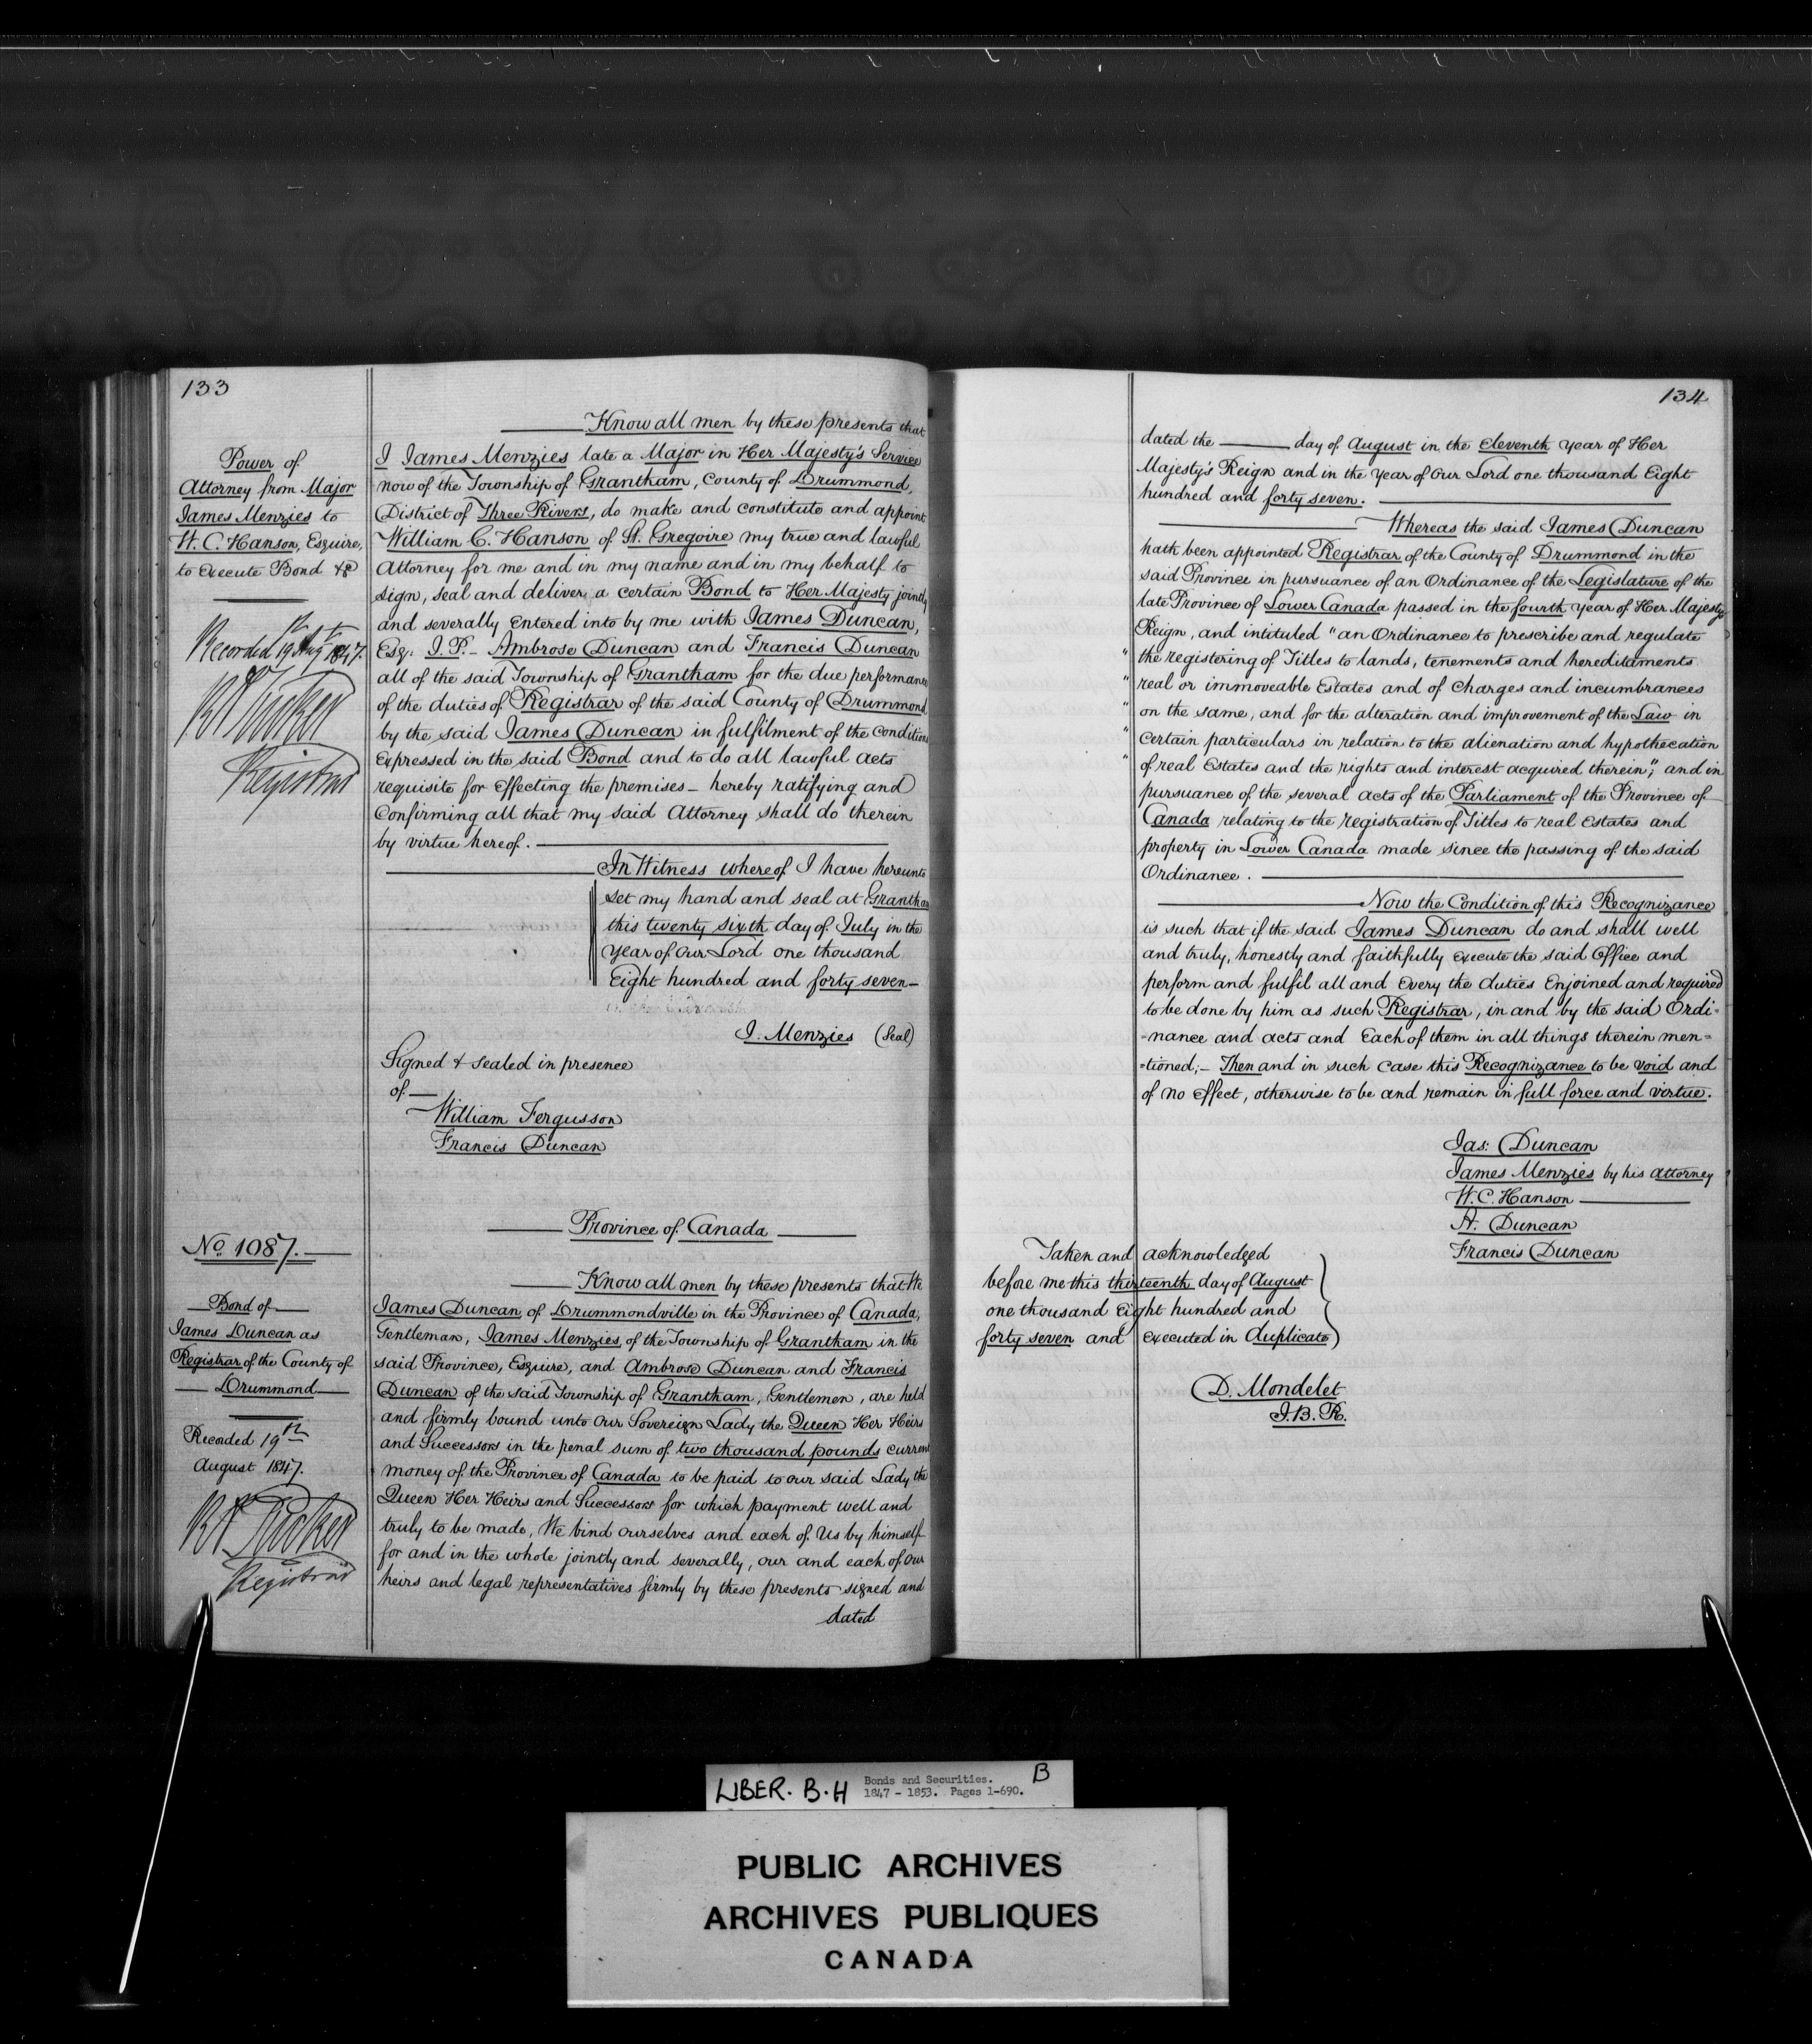 133
Power of
Attorney from Major
James Menzies to
W. C. Hanson, Esquire,
to execute Bond &c
Recorded 19th Augt 1847.
Registrar
Know all men by these presents that
I James Menzies late a Major in Her Majesty's Service
now of the Township of Grantham, County of Drummond,
District of Three Rivers, do make and constitute and appoint
William C. Hanson of St. Gregoire my true and lawful
Attorney for me and in my name and in my behalf to
sign, seal and deliver a certain Bond to Her Majesty jointly
and severally entered into by me with James Duncan,
Esq: J. P. - Ambrose Duncan and Francis Duncan
all of the said Township of Grantham for the due performance
of the duties of Registrar of the said County of Drummond
by the said James Duncan in fulfilment of the conditions
expressed in the said Bond and to do all lawful acts
requisite for effecting the premises - hereby ratifying and
Confirming all that my said Attorney shall do therein
by virtue hereof.
In Witness whereof I have hereunto
set my hand and seal at Grantham
this twenty sixth day of July in the
year of our Lord one thousand
Eight hundred and forty seven -
J. Menzies (Seal)
Signed & sealed in presence
of -
William Fergusson
Francis Duncan
No 1087.
Bond of
James Duncan as
Registrar of the County of
Drummond
Recorded 19th
August 1847.
Registrar
Province of Canada
Know all men by these presents that We
James Duncan of Drummondville in the Province of Canada,
Gentleman, James Menzies, of the Township of Grantham in the
said Province, Esquire, and Ambrose Duncan and Francis
Duncan of the said Township of Grantham, Gentlemen, are held
and firmly bound unto our Sovereign Lady the Queen Her Heirs
and Successors in the penal sum of two thousand pounds current
money of the Province of Canada to be paid to our said Lady the
Queen Her Heirs and Successors for which payment well and
truly to be made, We bind ourselves and each of us by himself
for and in the whole jointly and severally, our and each of our
heirs and legal representatives firmly by these presents signed and
dated
134
dated the ——— day of August in the Eleventh year of Her
Majesty's Reign and in the year of our Lord one thousand Eight
hundred and forty seven.
Whereas the said James Duncan
hath been appointed Registrar of the County of Drummond in the
said Province in pursuance of an Ordinance of the Legislature of the
late Province of Lower Canada passed in the fourth year of Her Majesty's
Reign, and intituled "an Ordinance to prescribe and regulate
" the registering of Titles to lands, tenements and hereditaments
" real or immoveable Estates and of Charges and incumbrances
" on the same, and for the alteration and improvement of the Law in
" certain particulars in relation to the alienation and hypothecation
" of real Estates and the rights and interest acquired therein"; and in
pursuance of the several acts of the Parliament of the Province of
Canada relating to the registration of Titles to real Estates and
property in Lower Canada made since the passing of the said
Ordinance.
Now the Condition of this Recognizance
is such that if the said James Duncan do and shall well
and truly, honestly and faithfully execute the said Office and
perform and fulfil all and Every the duties Enjoined and required
to be done by him as such Registrar, in and by the said Ordi=
=nance and acts and Each of them in all things therein men=
=tioned; - Then and in such case this Recognizance to be void and
of no effect, otherwise to be and remain in full force and virtue.
Jas: Duncan
James Menzies by his attorney
W. C. Hanson
A. Duncan
Francis Duncan
Taken and acknowledged
before me this thirteenth day of August
one thousand Eight hundred and
forty seven and executed in duplicate
D. Mondelet
J. B. R.
LIBER. B.H
Bonds and Securities.
1847 - 1853. Pages 1-690.
B
PUBLIC ARCHIVES
ARCHIVES PUBLIQUES
CANADA